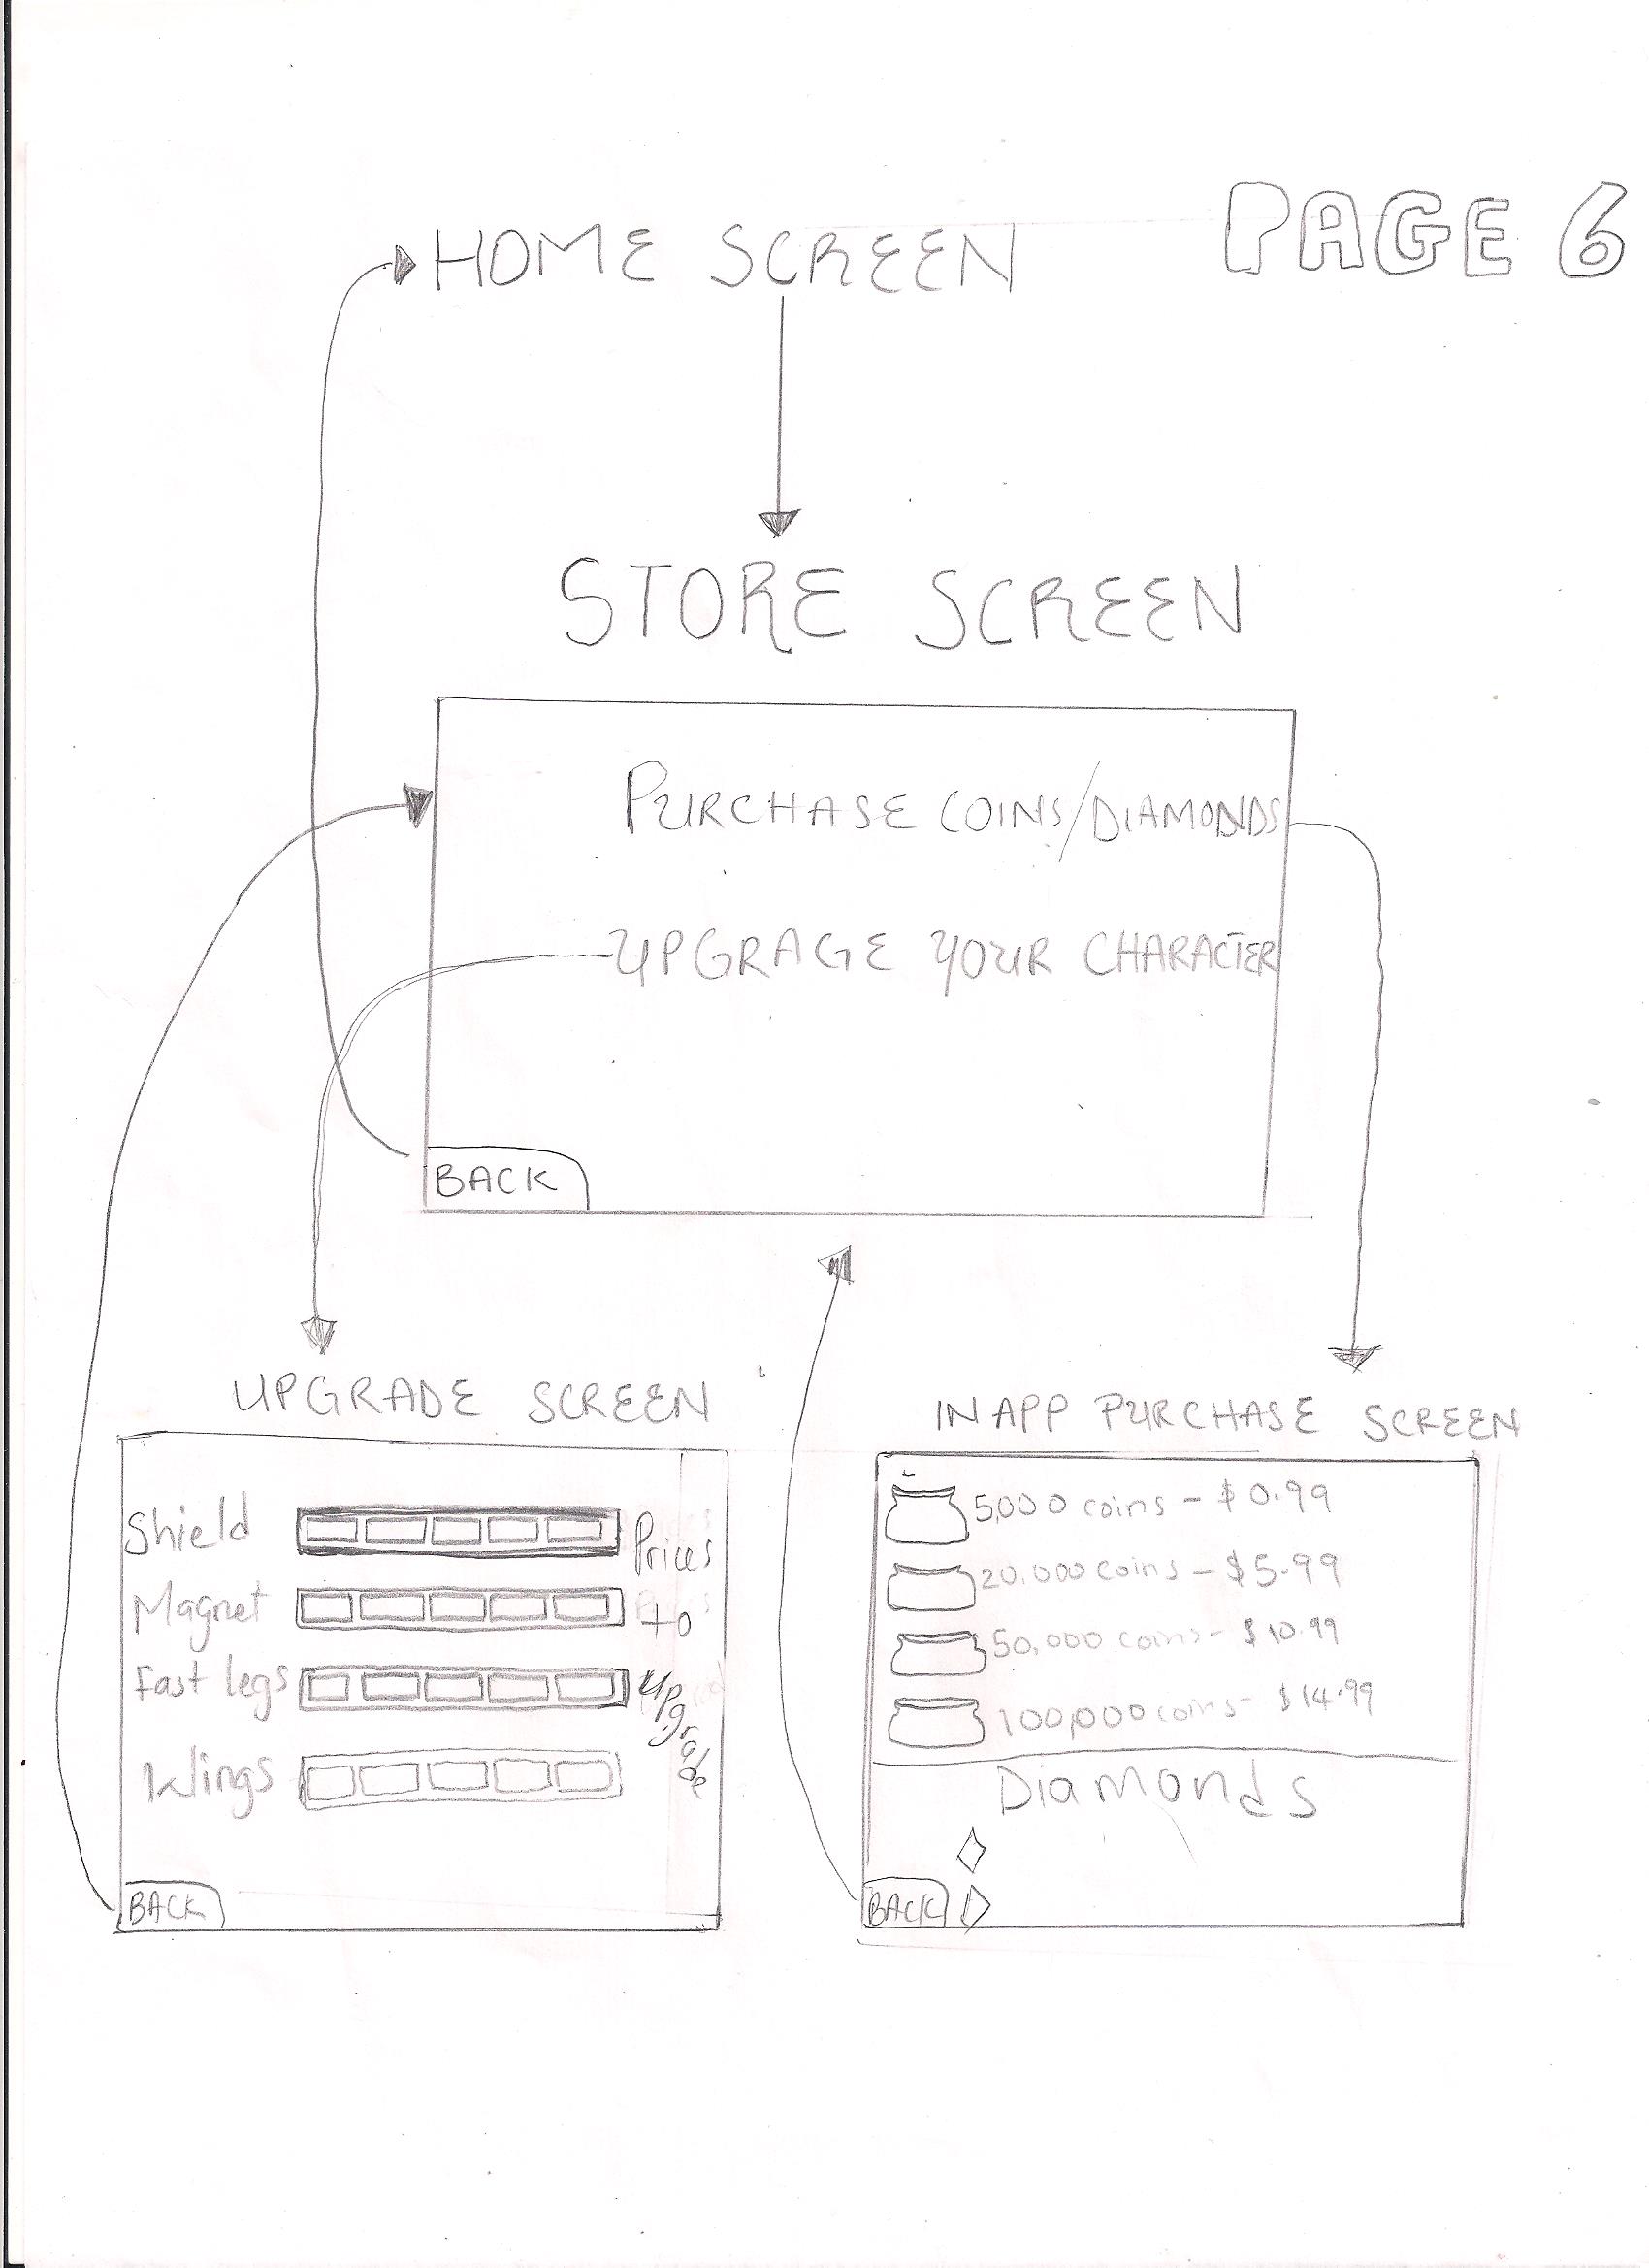 PAGE 6
HOME SCREEN
STORE SCREEN
PURCHASE COINS/DIAMONDS
UPGRAGE YOUR CHARACTER
BACK
UPGRADE SCREEN
Shield
Magnet
Fast legs
Wings
Prices
to
upgrade
BACK
IN APP PURCHASE SCREEN
5,000 coins - $0.99
20,000 coins - $5.99
50,000 coins - $10.99
100,000 coins - $14.99
Diamonds
BACK